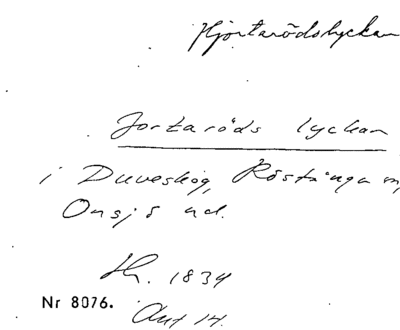 Hjortarödslyckan
Jortaröds lyckan
i Duveskog, Röstånga
Onsjö hd.
1834
Nr 8076.
14.